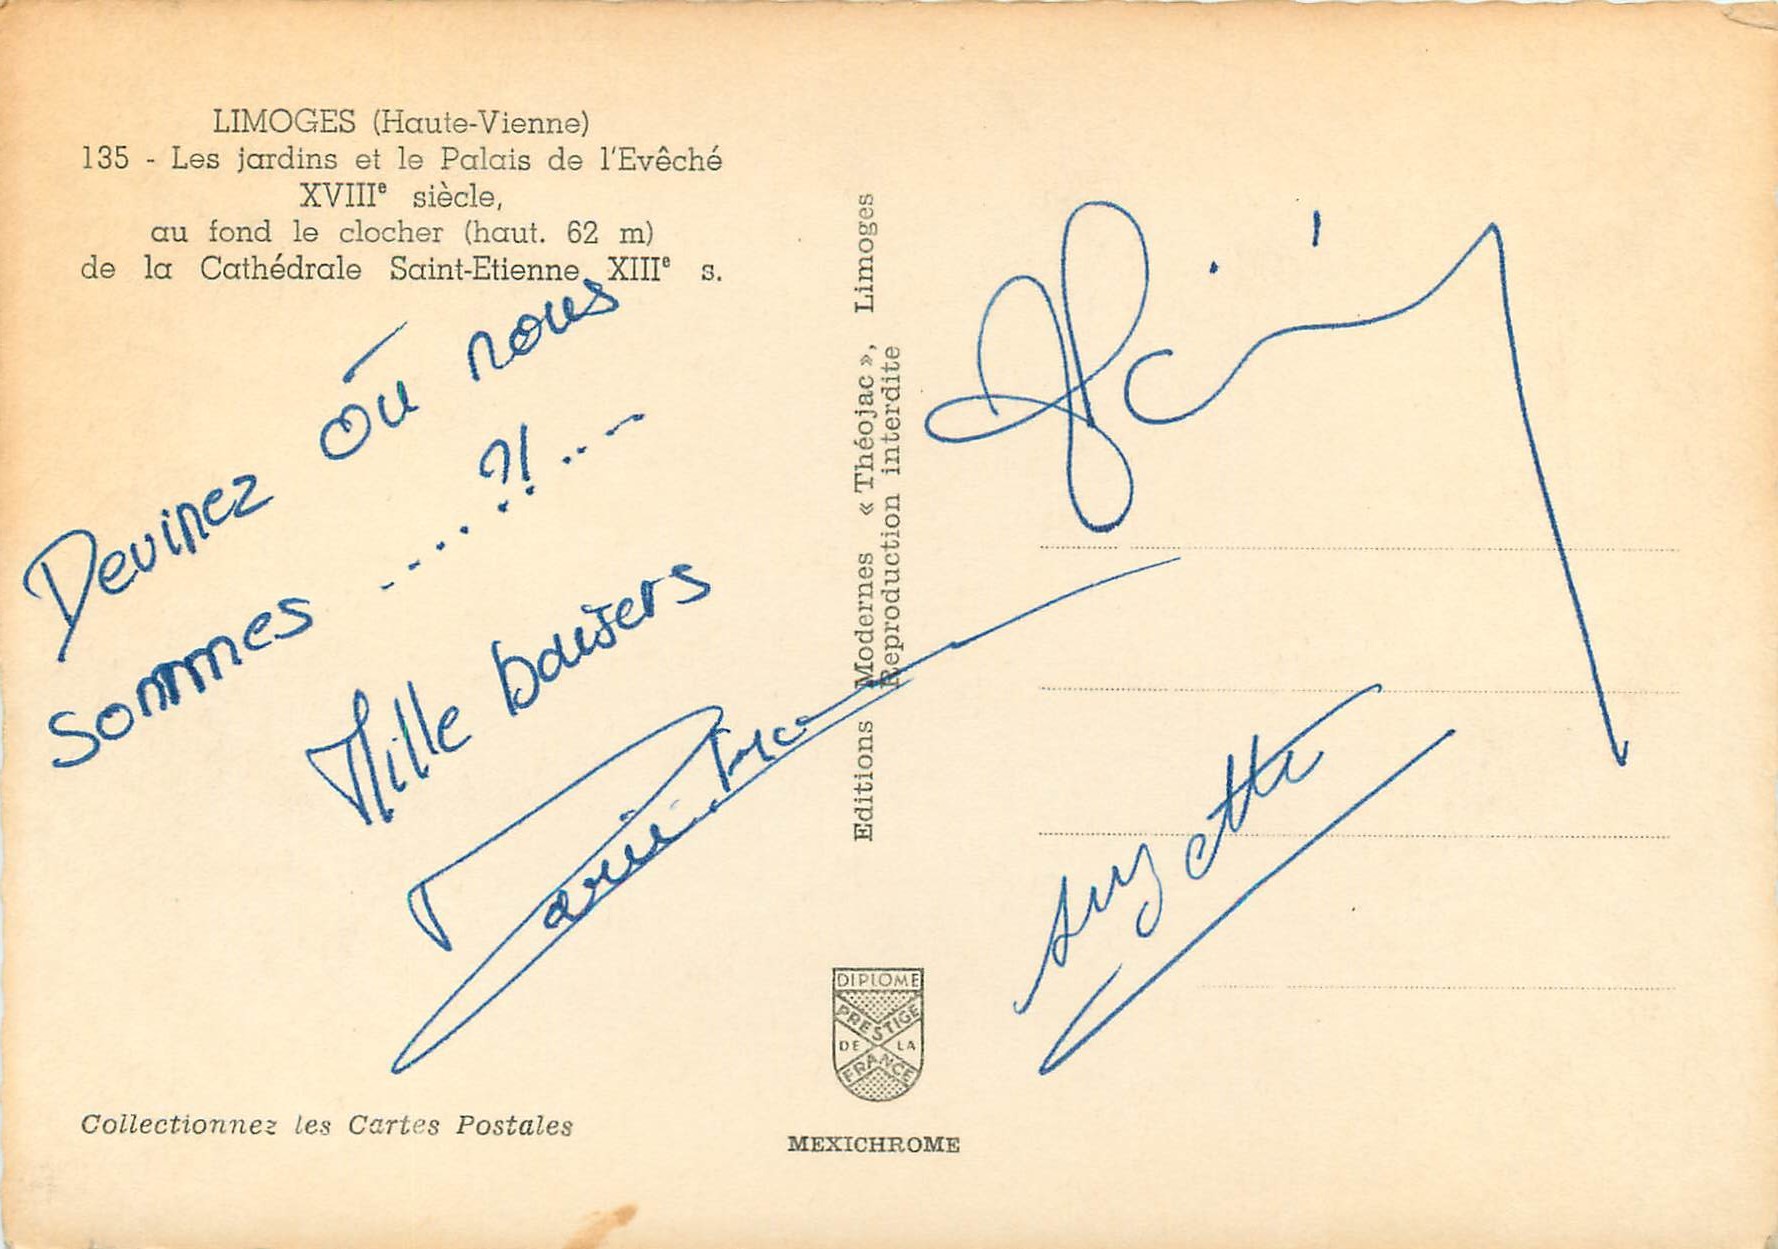 LIMOGES (Haute-Vienne)
135 - Les jardins et le Palais de l'Evêché
XVIIIe siècle,
au fond le clocher (haut. 62 m)
de la Cathédrale Saint-Etienne, XIIIe s.
Devinez où nous
sommes .....?!...
Mille baisers
Suzette
Editions Modernes « Théojac », Limoges
Reproduction interdite
DIPLOME
PRESTIGE
DE LA
FRANCE
Collectionnez les Cartes Postales
MEXICHROME